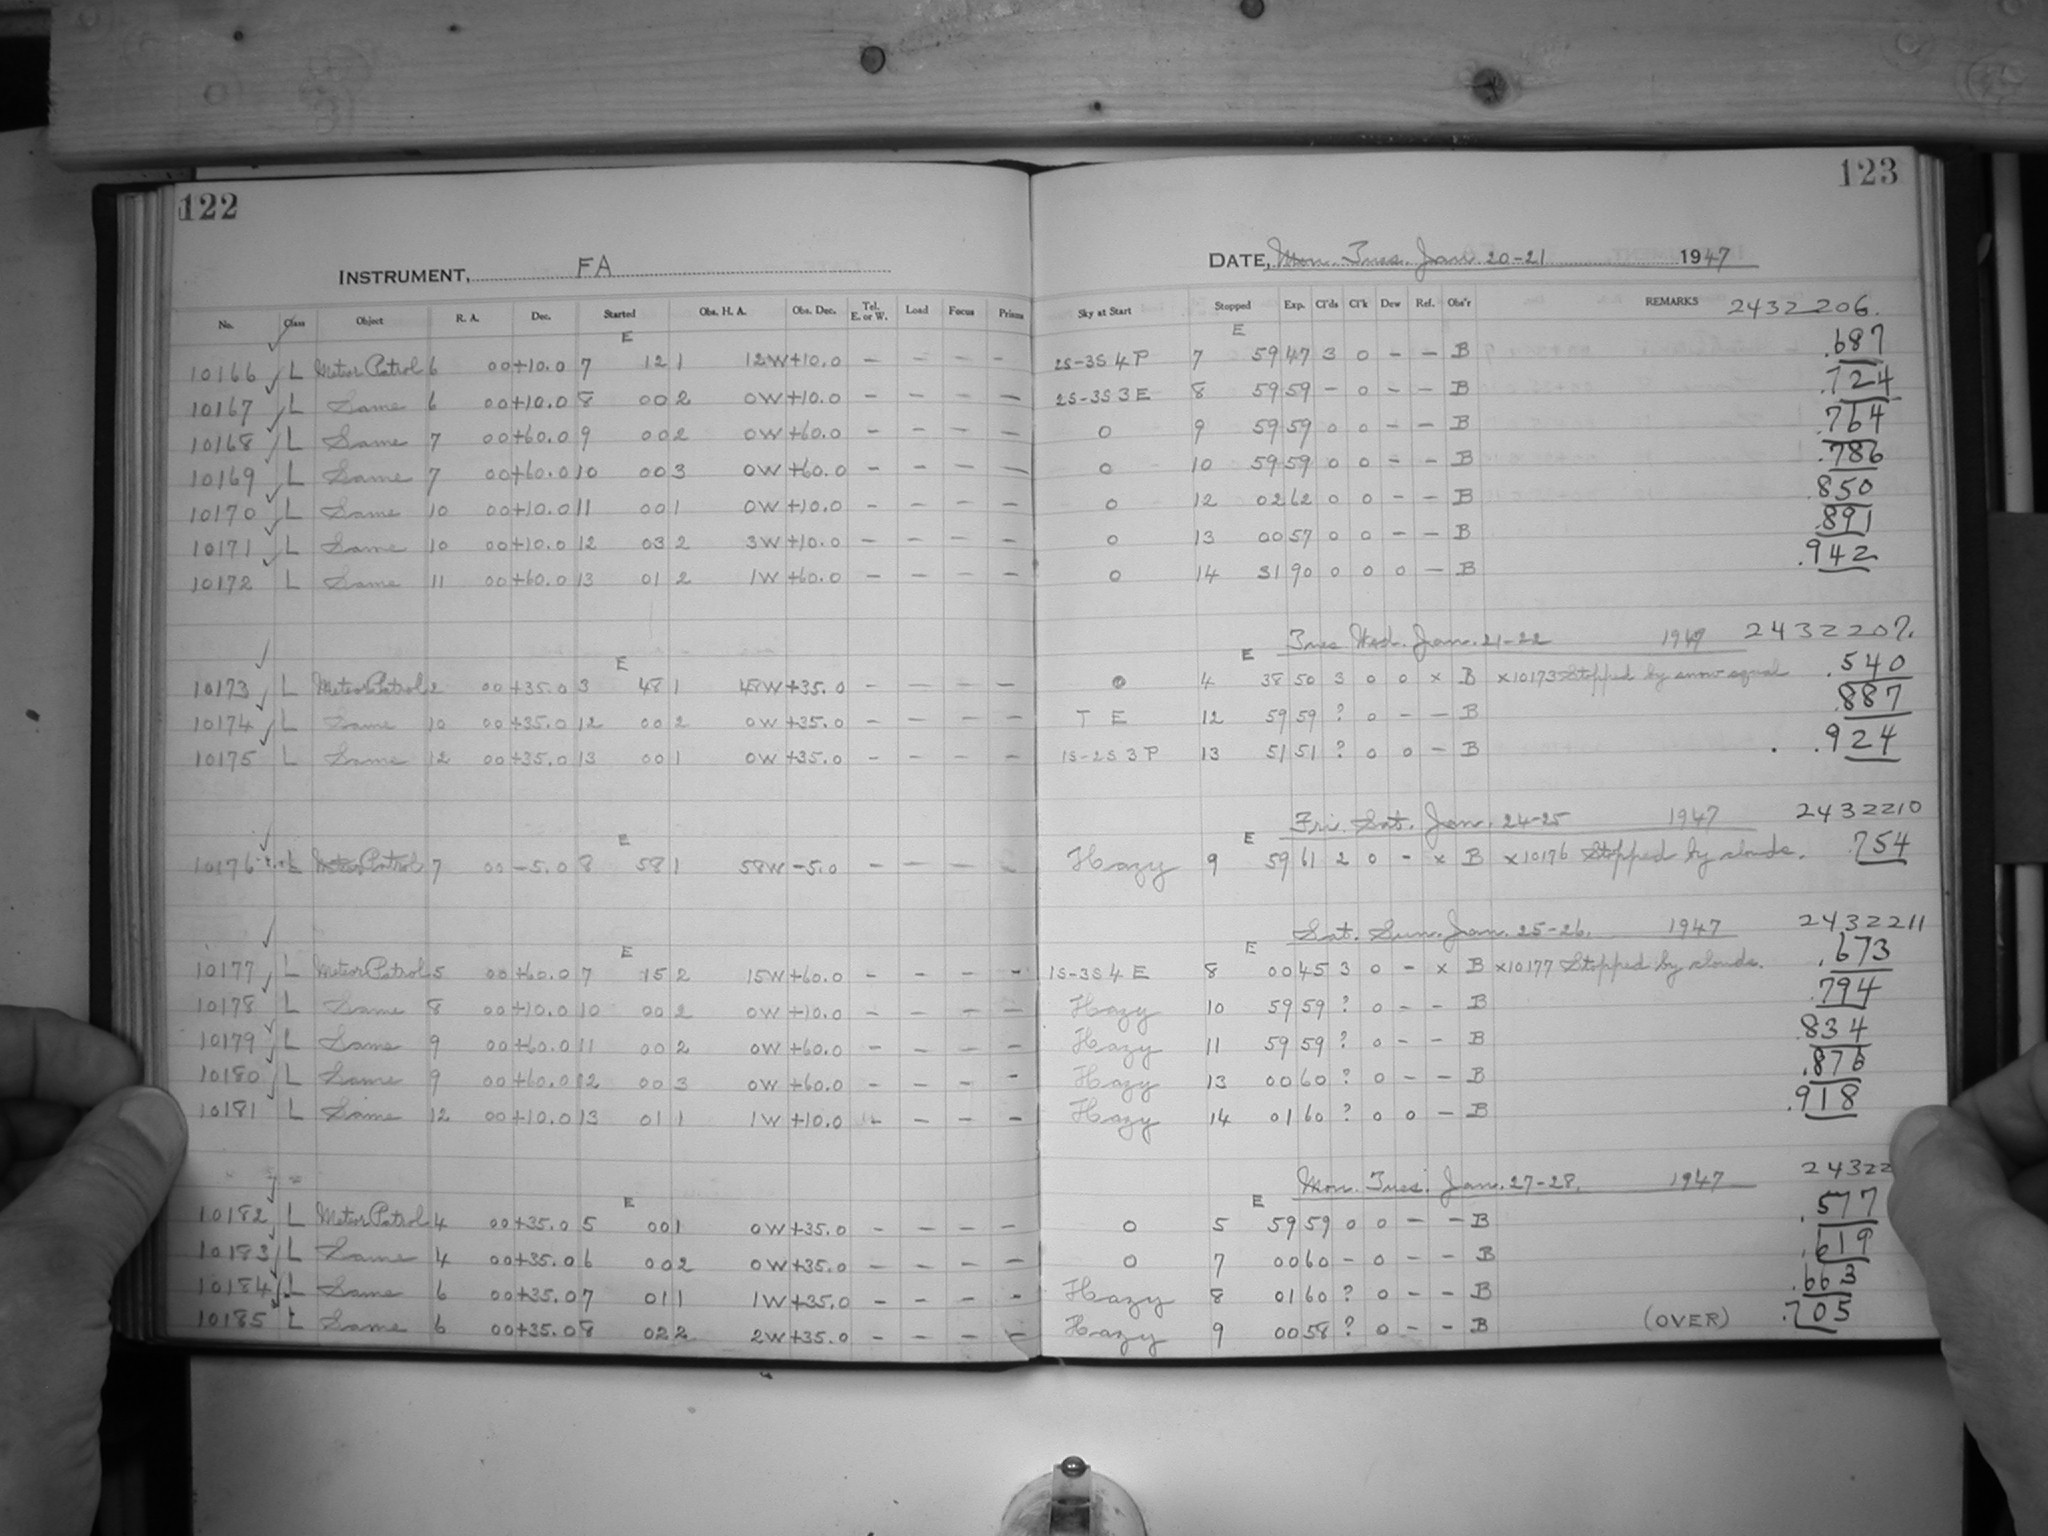 122
INSTRUMENT, FA
No. Class Object R. A. Dec. Started Obs. H. A. Obs. Dec. Tel. E. or W. Load Focus Prisms
E
10166 L Meteor Patrol 6 00 +10.0 7 12 1 12W +10.0 - - - -
10167 L Same 6 00 +10.0 8 00 2 0W +10.0 - - - -
10168 L Same 7 00 +60.0 9 00 2 0W +60.0 - - - -
10169 L Same 7 00 +60.0 10 00 3 0W +60.0 - - - -
10170 L Same 10 00 +10.0 11 00 1 0W +10.0 - - - -
10171 L Same 10 00 +10.0 12 03 2 3W +10.0 - - - -
10172 L Same 11 00 +60.0 13 01 2 1W +60.0 - - - -
E
10173 L Meteor Patrol 2 00 +35.0 3 48 1 48W +35.0 - - - -
10174 L Same 10 00 +35.0 12 00 2 0W +35.0 - - - -
10175 L Same 12 00 +35.0 13 00 1 0W +35.0 - - - -
E
10176 L Meteor Patrol 7 00 -5.0 8 58 1 58W -5.0 - - - -
E
10177 L Meteor Patrol 5 00 +60.0 7 15 2 15W +60.0 - - - -
10178 L Same 8 00 +10.0 10 00 2 0W +10.0 - - - -
10179 L Same 9 00 +60.0 11 00 2 0W +60.0 - - - -
10180 L Same 9 00 +60.0 12 00 3 0W +60.0 - - - -
10181 L Same 12 00 +10.0 13 01 1 1W +10.0 - - - -
E
10182 L Meteor Patrol 4 00 +35.0 5 00 1 0W +35.0 - - - -
10183 L Same 4 00 +35.0 6 00 2 0W +35.0 - - - -
10184 L Same 6 00 +35.0 7 01 1 1W +35.0 - - - -
10185 L Same 6 00 +35.0 8 02 2 2W +35.0 - - - -
123
DATE, Mon. Tues. Jan 20-21 1947
Sky at Start Stopped Exp. Cl'ds Cl'k Dew Ref. Obs'r REMARKS 2432206.
E
2S-3S 4 P 7 59 47 3 0 - - B .687
2S-3S 3 E 8 59 59 - 0 - - B .724
0 9 59 59 0 0 - - B .764
0 10 59 59 0 0 - - B .786
0 12 02 62 0 0 - - B .850
0 13 00 57 0 0 - - B .891
0 14 31 90 0 0 0 - B .942
Tues Wed. Jan. 21-22 1947 2432207.
E
4 38 50 3 0 0 x B x10173 Stopped by snow squal .540
T E 12 59 59 ? 0 - - B .887
1S-2S 3 P 13 51 51 ? 0 0 - B .924
Fri. Sat. Jan. 24-25 1947 2432210
E
Hazy 9 59 61 2 0 - x B x10176 Stopped by clouds. .754
Sat. Sun. Jan. 25-26. 1947 2432211
E
1S-3S 4 E 8 00 45 3 0 - x B x10177 Stopped by clouds. .673
Hazy 10 59 59 ? 0 - - B .794
Hazy 11 59 59 ? 0 - - B .834
Hazy 13 00 60 ? 0 - - B .876
Hazy 14 01 60 ? 0 0 - B .918
Mon. Tues. Jan. 27-28. 1947 24322
E
0 5 59 59 0 0 - - B .577
0 7 00 60 - 0 - - B .619
Hazy 8 01 60 ? 0 - - B .663
Hazy 9 00 58 ? 0 - - B (OVER) .705